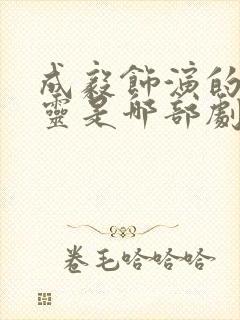 成毅飾演的
靈是那部劇
卷毛哈哈哈